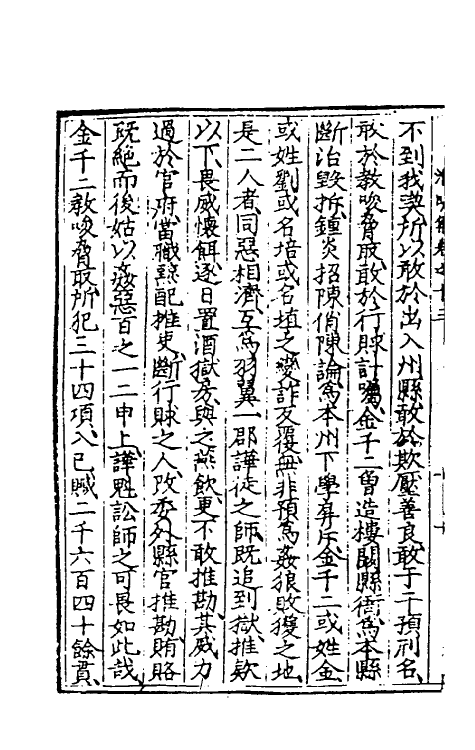 不到我與所以敢於出入州縣敢於欺壓善良敢于干預刑名
敢於教唆脅取敢於行賕計囑金千二曾造樓閣縣衙爲本縣
斷治毀拆鍾炎招陳俏陳論爲本州下學屏斥金千二或姓金
或姓劉或名培或名埴之變詐反覆無非預爲姦狼敗獲之地
是二人者同惡相濟互爲羽翼一郡譁徒之師既追到獄推欵
以下畏威懷餌逐日置酒獄房與之燕飲更不敢推勘其威力
過於官府當職採配推吏斷行賕之人改委外縣官推勘賄賂
旣絕而後姑以姦惡百之一二申上譁魁訟師之可畏如此哉
金千二教唆脅取所犯三十四項入己贓二千六百四十餘貫